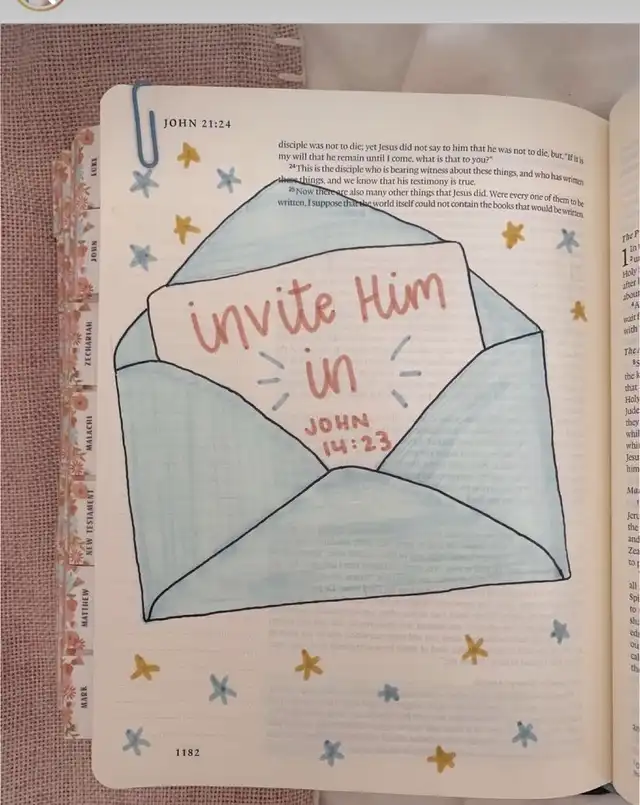 JOHN 21:24
disciple was not to die; yet Jesus did not say to him that he was not to die, but, "If it is
my will that he remain until I come, what is that to you?"
24 This is the disciple who is bearing witness about these things, and who has written
these things, and we know that his testimony is true.
25 Now there are also many other things that Jesus did. Were every one of them to be
written, I suppose that the world itself could not contain the books that would be written.
invite Him
in
JOHN
14:23
1182
LUKE
JOHN
ZECHARIAH
MALACHI
NEW TESTAMENT
MATTHEW
MARK